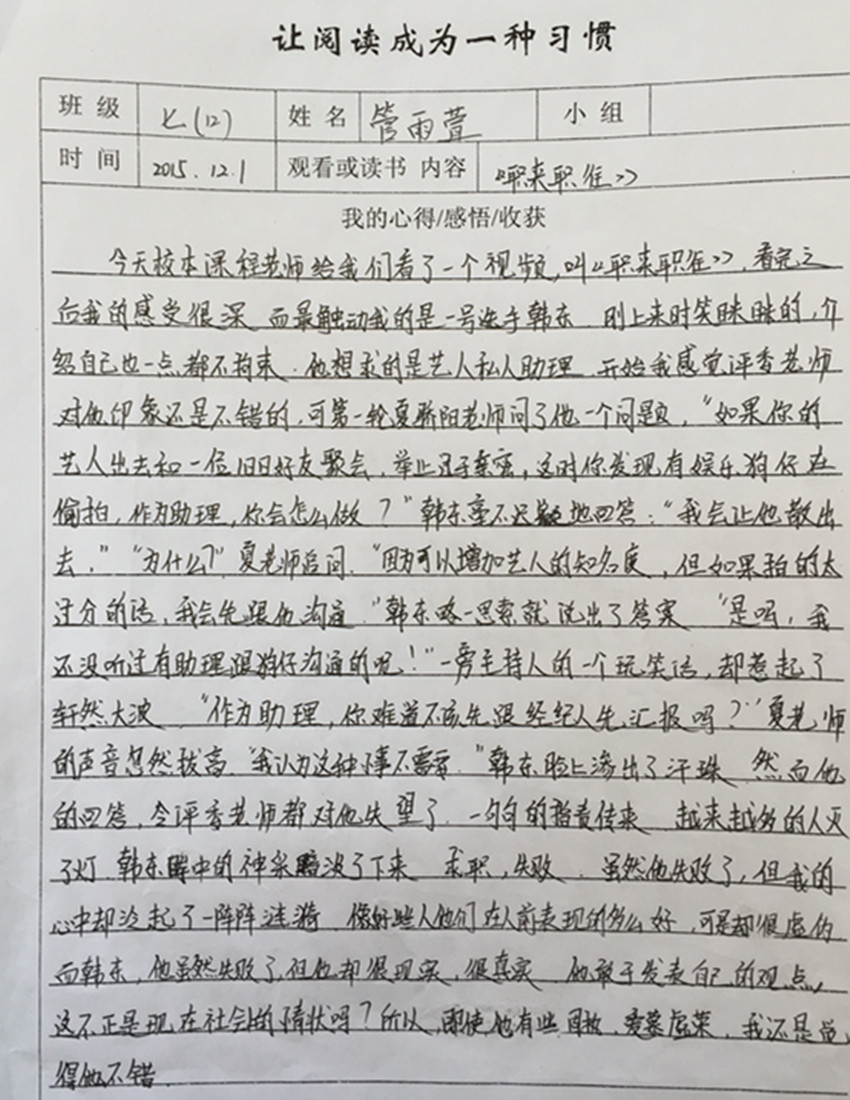 让阅读成为一种习惯
班级 七(12) 姓名 管雨萱 小组
时间 2015.12.1 观看或读书 内容 《职来职往》
我的心得/感悟/收获
今天校本课程老师给我们看了一个视频,叫《职来职往》,看完之
后我的感受很深 而最触动我的是一号选手韩东 刚上来时笑眯眯的,介
绍自己也一点都不拘束.他想求的是艺人私人助理 开始我感觉评委老师
对他印象还是不错的,可第一轮夏骄阳老师问了他一个问题,“如果你的
艺人出去和一位旧日好友聚会,举止过于亲密,这时你发现有娱乐狗仔在
偷拍,作为助理,你会怎么做?”韩东毫不迟疑地回答:“我会让他散出
去.”“为什么?”夏老师追问.“因为可以增加艺人的知名度,但如果拍的太
过分的话,我会先跟他沟通.”韩东略一思索就说出了答案 “是吗,我
还没听过有助理跟狗仔沟通的呢!”一旁主持人的一个玩笑话,却惹起了
轩然大波 “作为助理,你难道不该先跟经纪人先汇报吗?”夏老师
的声音忽然拔高.“我认为这种事不需要.”韩东脸上渗出了汗珠 然而他
的回答,令评委老师都对他失望了.一句句的指责传来 越来越多的人灭
了灯.韩东眸中的神采黯没了下来 求职,失败.虽然他失败了,但我的
心中却泛起了一阵阵涟漪 像好些人他们在人前表现的多么好,可是却很虚伪
而韩东,他虽然失败了,但他却很现实,很真实 他敢于发表自己的观点,
这不正是现在社会的情状吗?所以,即使他有些自故、爱慕虚荣,我还是觉
得他不错.